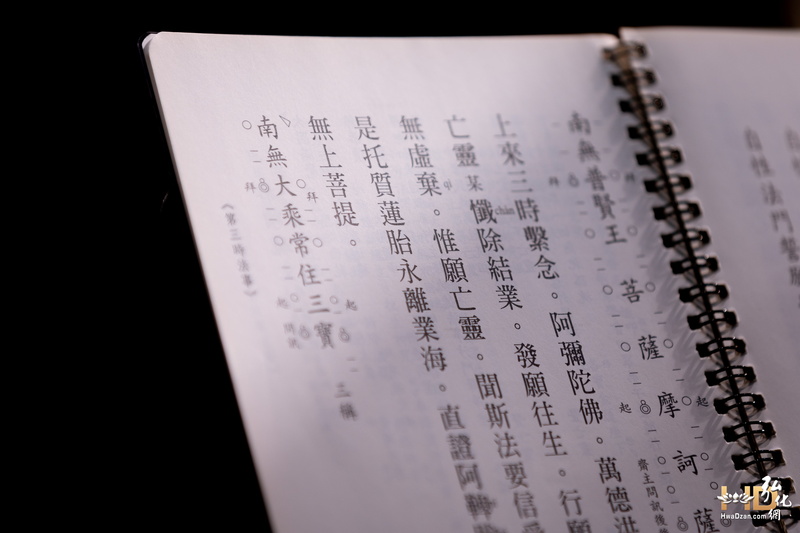 自性
自性法門誓願
南無普賢王菩薩摩訶薩
拜
拜
起
起
齋主問訊後
上來三時繫念。阿彌陀佛。萬德洪
亡靈某懺除結業。發願往生。行願
chàn
無虛棄。惟願亡靈。聞斯法要信受
是托質蓮胎永離業海。直證阿鞞
無上菩提。
南無大乘常住三寶 三稱
拜
拜
起
起
問訊
《第三時法事》
HD
弘化網
HwaDzan.com